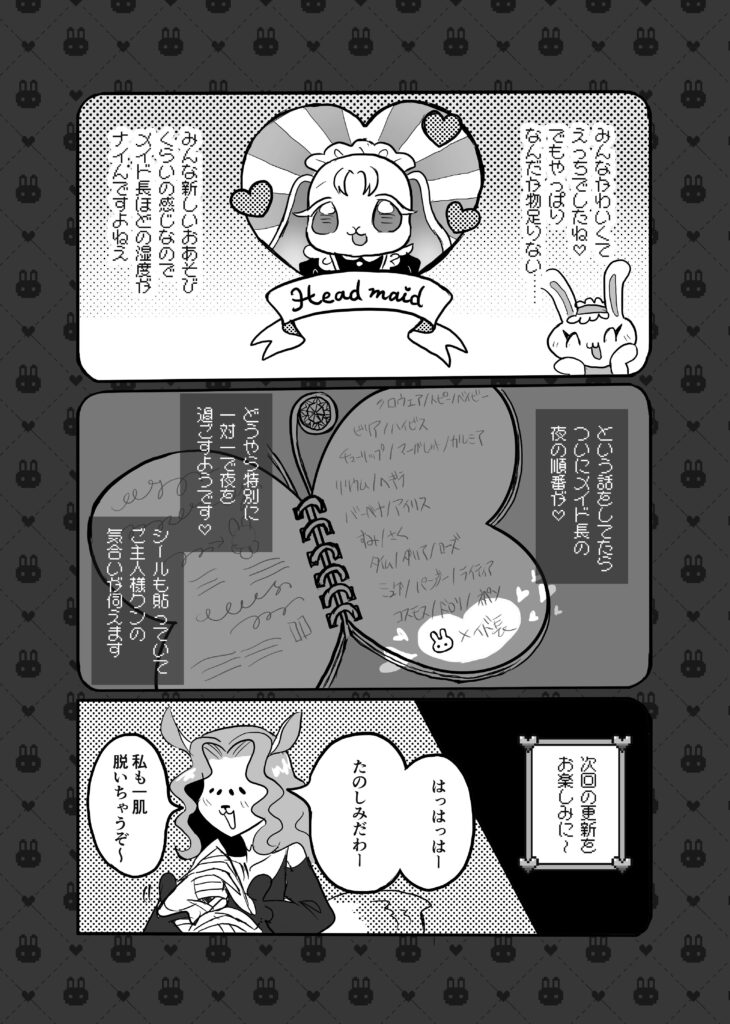 みんなやわいくて
えっちでしたね♡
でもやっぱり…
なんだや物足りない……
Head maid
みんな新しいおあそび
くらいの感じなので
メイド長ほどの湿度が
ナイんですよねえ
という話をしてたら
ついにメイド長の
夜の順番が♡
クロウェア/ハピ/ベイビー
ビリア/ハイビス
チューリップ/マーガレット/カルミア
リリウム/ヘデラ
バーベナ/アイリス
すみ/さく
タイム/ダリア/ローズ
ミュゲ/パンジー/ライティア
コスモス/ドロリ/ポン
×イド長
どうやら特別に
一対一で夜を
過ごすようです♡
シールも貼っていて
ご主人様クンの
気合いが伺えます
次回の更新を
お楽しみに～
はっはっはー
たのしみだわー
私も一肌
脱いちゃうぞ～